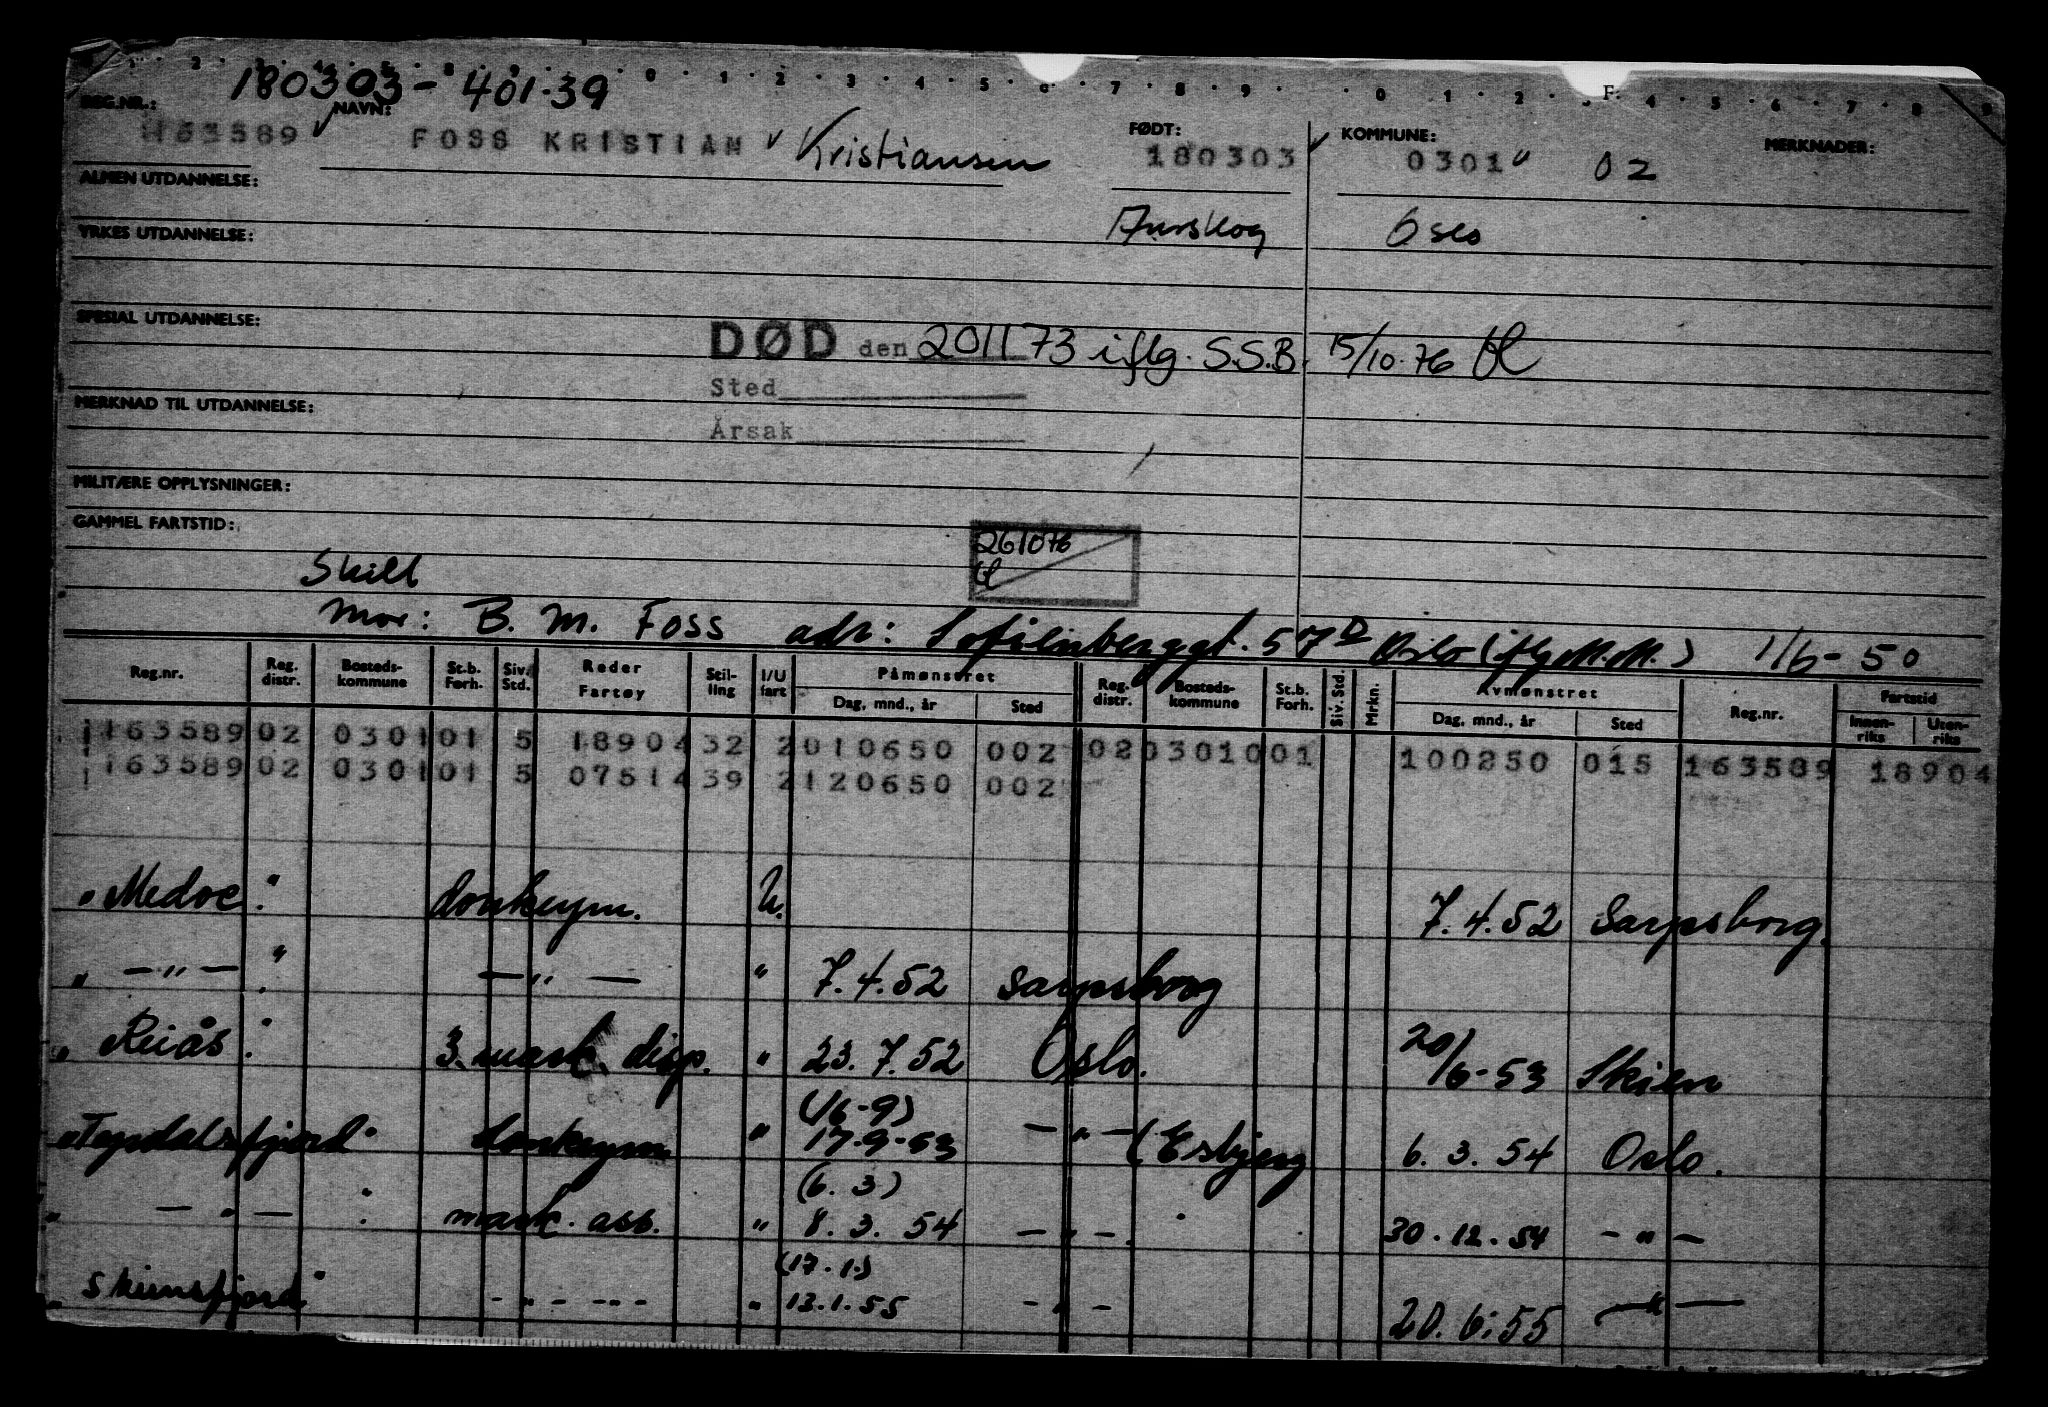 180303 - 401.39
REG.NR.: NAVN: FØDT: KOMMUNE: MERKNADER:
163589 FOSS KRISTIAN Kristiansen 180303 0301 02
ALMEN UTDANNELSE:
Aurskog Oslo
YRKES UTDANNELSE:
SPESIAL UTDANNELSE:
DØD den 201173 iflg. S.S.B. 15/10.76
Sted
MERKNAD TIL UTDANNELSE:
Årsak
MILITÆRE OPPLYSNINGER:
GAMMEL FARTSTID:
261076
Skilt
Mor: B. M. Foss adr: Sofienberggt. 57D Oslo (iflg M.M.) 1/6-50
Reg.nr. Reg. distr. Bosteds-kommune St.b. Førh. Siv. Std. Reder Fartøy Stil-ling I/U fart Påmønstret Dag, mnd., år Sted Reg. distr. Bosteds-kommune St.b. Forh. Siv. Std. Mrkn. Avmønstret Dag, mnd., år Sted Reg.nr. Fartstid Innen-riks Uten-riks
163589 02 0301 01 5 18904 32 2 010650 002 02 0301 001 100250 015 163589 18904
163589 02 0301 01 5 07514 39 2 120650 002
"Medoc" donkeym. U. 7.4.52 Sarpsborg.
" — " — " — " — " 7.4.52 Sarpsborg
"Reiås" 3. mask. disp. " 23.7.52 Oslo. 20/6-53 Skien
(16-9)
"Topdalsfjord" donkeym " 17-9-53 — " — (Esbjerg 6.3.54 Oslo.
(6.3)
" — " — " mask. ass. " 8.3.54 — " — 30.12.54 — " —
(17.1.)
"Skiensfjord" — " — " 13.1.55 — " — 20.6.55 — " —